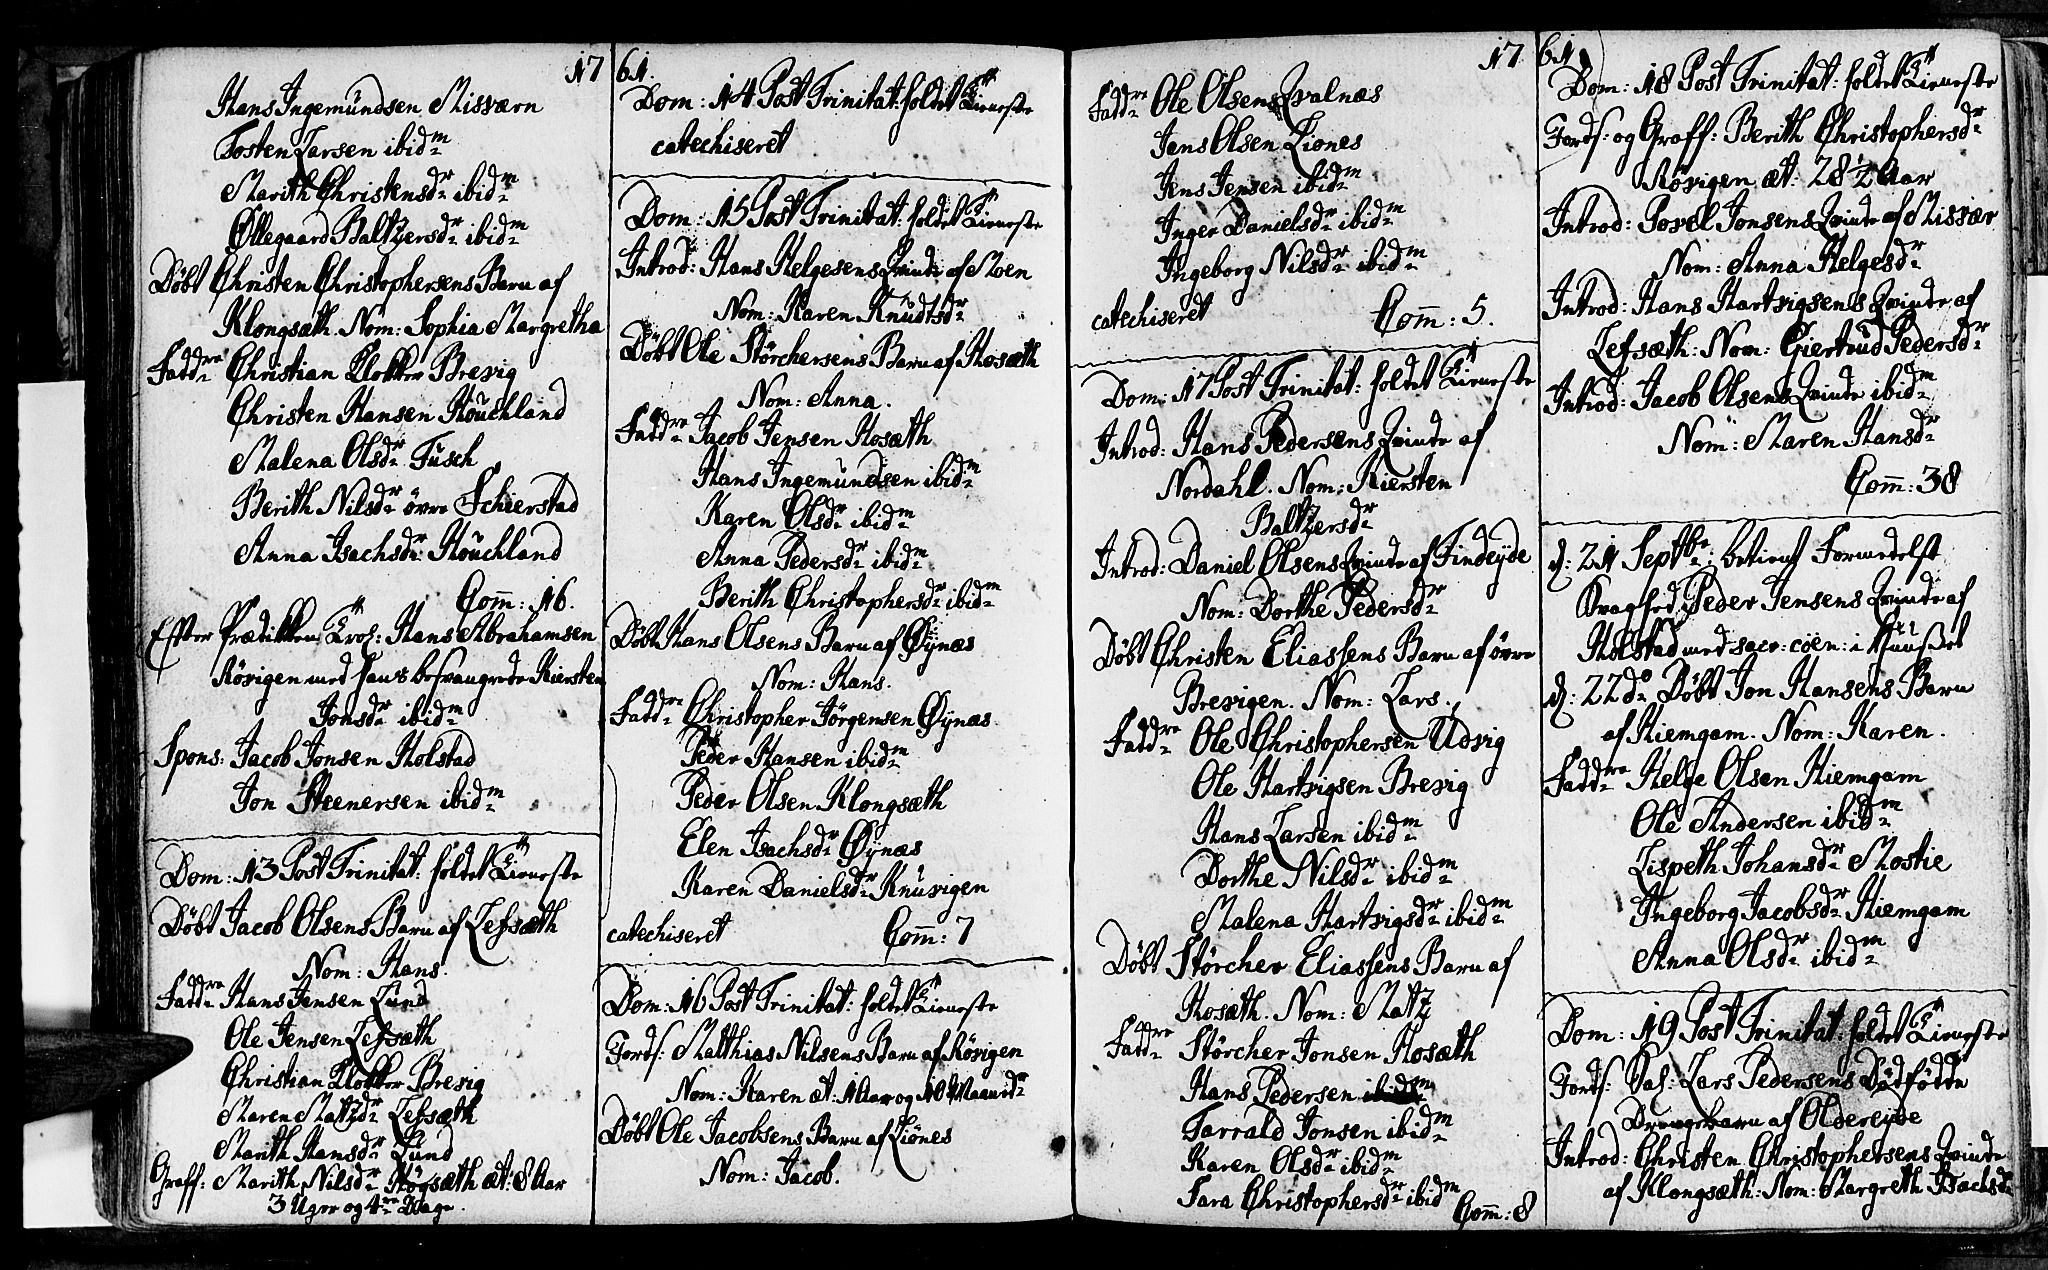 17 61.
Hans Ingemundsen Missærn
Tosten Larsen ibidm
Marith Christensdr ibidm
Øllegaard Baltzersdr ibidm
Döbt Christen Christophersens Barn af
Klongsæth. Nom: Sophia Margretha
Faddre Christian Klokker Brevig
Christen Hansen Houchland
Malena Olsdr Fusch
Berith Nilsdr övre Schierstad
Anna Isachsdr Houchland
Com̅: 16.
Efter Prædikken Trol: Hans Abrahamsen
Rövigen med hans besvangrede Kiersten
Jonsdr ibidm
Spons: Jacob Jonsen Holstad
Jon Steenersen ibidm
Dom: 13 Post Trinitat: holdet Tieneste
Döbt Jacob Olsens Barn af Lefsæth
Nom: Hans.
Faddre Hans Jensen Lund
Ole Jensen Lefsæth
Christian Klokker Brevig
Maren Matzdr Lefsæth
Marith Hansdr Lund
Graff: Marith Nilsdr Högsæth æt: 8 Aar
3 Uger og 4re Dage.
Dom: 14 Post Trinitat: holdet Tieneste
catechiseret
Dom: 15 Post Trinitat: holdet Tieneste
Introd: Hans Helgesens Qvinde af Moen
Nom: Karen Knudtsdr
Döbt Ole Störchersens Barn af Hosæth
Nom: Anna.
Faddre Jacob Jensen Hosæth
Hans Ingemundsen ibidm
Karen Olsdr ibidm
Anna Pedersdr ibidm
Berith Christophersdr ibidm
Döbt Hans Olsens Barn af Øynæs
Nom: Hans.
Faddre Christopher Jörgensen Øynæs
Peder Hansen ibidm
Peder Olsen Klongsæth
Elen Isachsdr Øynæs
Karen Danielsdr Knüvigen
catechiseret Com̅: 7
Dom: 16 Post Trinitat: holdet Tieneste
Jords: Matthias Nilsens Barn af Rövigen
Nom: Karen æt: 1 Aar og 10 Maaneder
Döbt Ole Jacobsens Barn af Liönes
Nom: Jacob.
17 61.
Faddre Ole Olsen Qvalnæs
Jens Olsen Liones
Jens Jensen ibidm
Inger Danielsdr ibidm
Ingeborg Nilsdr ibidm
catechiseret Com̅: 5.
Dom: 17 Post Trinitat: holdet Tieneste
Introd: Hans Pedersens Qvinde af
Nordahl. Nom: Kiersten
Baltzersdr
Introd: Daniel Olsens Qvinde af Findeyde
Nom: Dorthe Pedersdr
Döbt Christen Eliassens Barn af övre
Brevigen. Nom: Lars.
Faddre Ole Christophersen Udvig
Ole Hartvigsen Brevig
Hans Larsen ibidm
Dorthe Nilsdr ibidm
Malena Hartvigsdr ibidm
Döbt Störcher Eliassens Barn af
Hosæth. Nom: Matz
Faddre Störcher Jonsen Hosæth
Hans Pedersen ibidm
Tarrald Jonsen ibidm
Karen Olsdr ibidm
Tara Christophersdr ibidm Com̅: 8
Dom: 18 Post Trinitat: holdet Tieneste
Jords: og Graff: Berith Christophersdr
Rövigen æt: 28 ½ Aar
Introd: Povel Jonsens Qvinde af Missær
Nom: Anna Helgesdr
Introd: Hans Hartvigsens Qvinde af
Lefsæth: Nom: Giertrud Pedersdr
Introd: Jacob Olsens Qvinde ibidm
Nom: Maren Hansdr
Com̅: 38
d: 21 Septbr: betient Formedelst
Svaghed Peder Jensens Qvinde af
Holstad med sacr: coen: i Huuset
d: 22do Döbt Jon Hansens Barn
af Hiemgam. Nom: Karen.
Faddre Helge Olsen Hiemgam
Ole Andersen ibidm
Lispeth Johansdr Mostie
Ingeborg Jacobsdr Hiemgam
Anna Olsdr ibidm
Dom: 19 Post Trinitat: holdet Tieneste
Jords: Sal: Lars Pedersens Dödfödde
Drengebarn af Oldereyde
Introd: Christen Christophersens Qvinde
af Klongsæth: Nom: Margreth Isachsdr